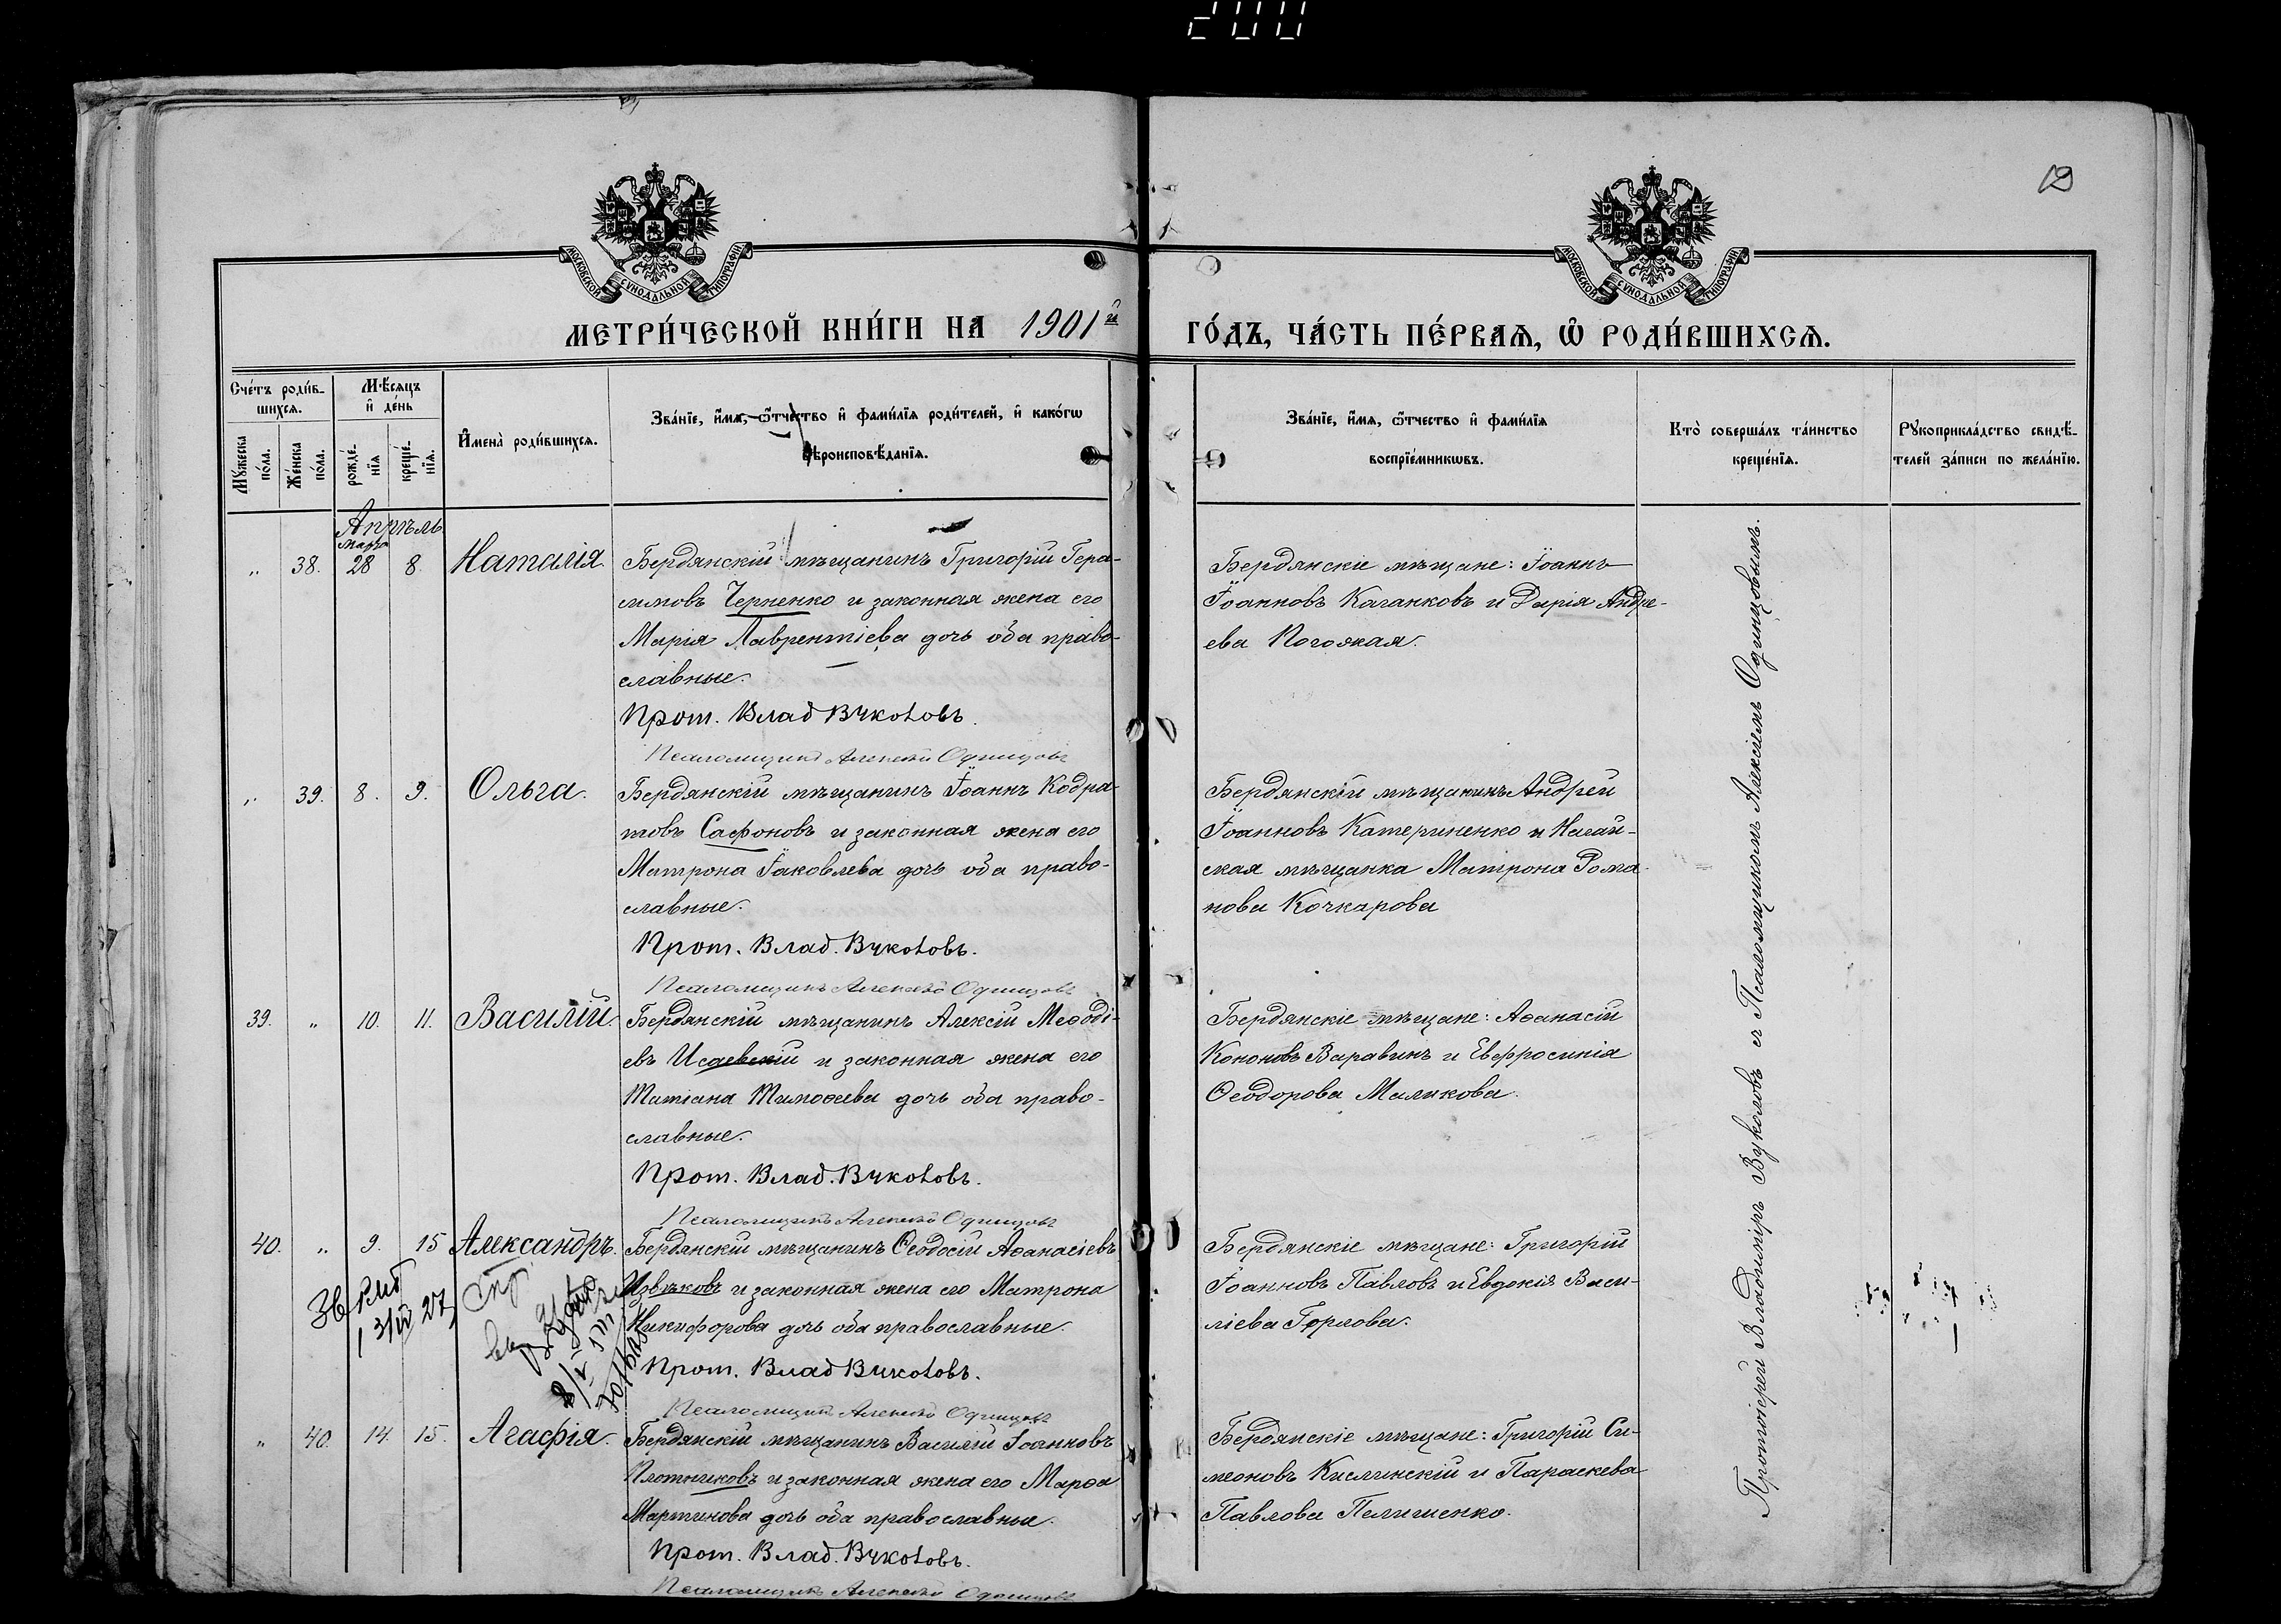 200
19
МОСКОВСКОЙ СѴНОДАЛЬНОЙ ТИПОГРАФІИ
МОСКОВСКОЙ СѴНОДАЛЬНОЙ ТИПОГРАФІИ
МЕТРИ́ЧЕСКОЙ КНИ́ГИ НА 1901й ГО́ДЪ, ЧА́СТЬ ПЕ́РВАѦ, Ѿ РОДИ́ВШИХСѦ.
Сче́тъ роди́в-
шихсѧ.
Мꙋжеска по́ла.
Же́нска по́ла.
Мѣ́сѧцъ
и҆ де́нь
рожде́-
нїѧ
креще́-
нїѧ.
И҆мена̀ роди́вшихсѧ.
Зва́нїе, и҆́мѧ, ѻ҆́тчество и҆ фами́лїѧ роди́телей, и҆ како́гѡ
вѣроисповѣ́данїѧ.
Зва́нїе, и҆́мѧ, ѻ҆́тчество и҆ фами́лїѧ
воспрїе́мникѡвъ.
Кто̀ соверша́лъ та́инство
креще́нїѧ.
Рꙋкоприкла́дство свидѣ́-
телей за́писи по жела́нїю.
Апрѣль
Марта
„ 38. 28 8. Наталія.
Бердянскій мѣщанинъ Григорій Гера-
симовъ Черненко и законная жена его
Марія Лаврентіева дочь оба право-
славные.
Прот. Влад Вуколовъ.
Псаломщикъ Алексѣй Одинцовъ
Бердянскіе мѣщане: Іоаннъ
Іоанновъ Каганковъ и Дарія Андре-
ева Погожая.
„ 39. 8. 9. Ольга.
Бердянскій мѣщанинъ Іоаннъ Кодра-
товъ Сафоновъ и законная жена его
Матрона Іаковлева дочь оба право-
славные.
Прот. Влад. Вуколовъ.
Псаломщикъ Алексѣй Одинцовъ
Бердянскій мѣщанинъ Андрей
Іоанновъ Катериненко и Ногай-
ская мѣщанка Матрона Рома-
нова Кочкарова
39. „ 10. 11. Василій.
Бердянскій мѣщанинъ Алексій Меѳоді-
евъ Исаевскій и законная жена его
Татіана Тимоѳеева дочь оба право-
славные.
Прот. Влад. Вуколовъ.
Псаломщикъ Алексѣй Одинцовъ
Бердянскіе мѣщане: Аѳанасій
Кононовъ Варавинъ и Евфросинія
Ѳеодорова Маликова.
40. „ 9. 15 Александръ.
Бердянскій мѣщанинъ Ѳеодосій Аѳанасіевъ
Извѣковъ и законная жена его Матрона
Никифорова дочь оба православные.
Прот. Влад Вуколовъ.
Псаломщикъ Алексѣй Одинцовъ
Бердянскіе мѣщане: Григорій
Іоанновъ Павловъ и Евдокія Васи-
ліева Горлова.
„ 40. 14. 15. Агафія.
Бердянскій мѣщанинъ Василій Іоанновъ
Плотниковъ и законная жена его Марѳа
Мартинова дочь оба православные.
Прот. Влад. Вуколовъ.
Псаломщикъ Алексѣй Одинцовъ
Бердянскіе мѣщане: Григорій Си-
меоновъ Кислинскій и Параскева
Павлова Пелишенко.
Протоіерей Владиміръ Вуколовъ съ Псаломщикомъ Алексіемъ Одинцовымъ.